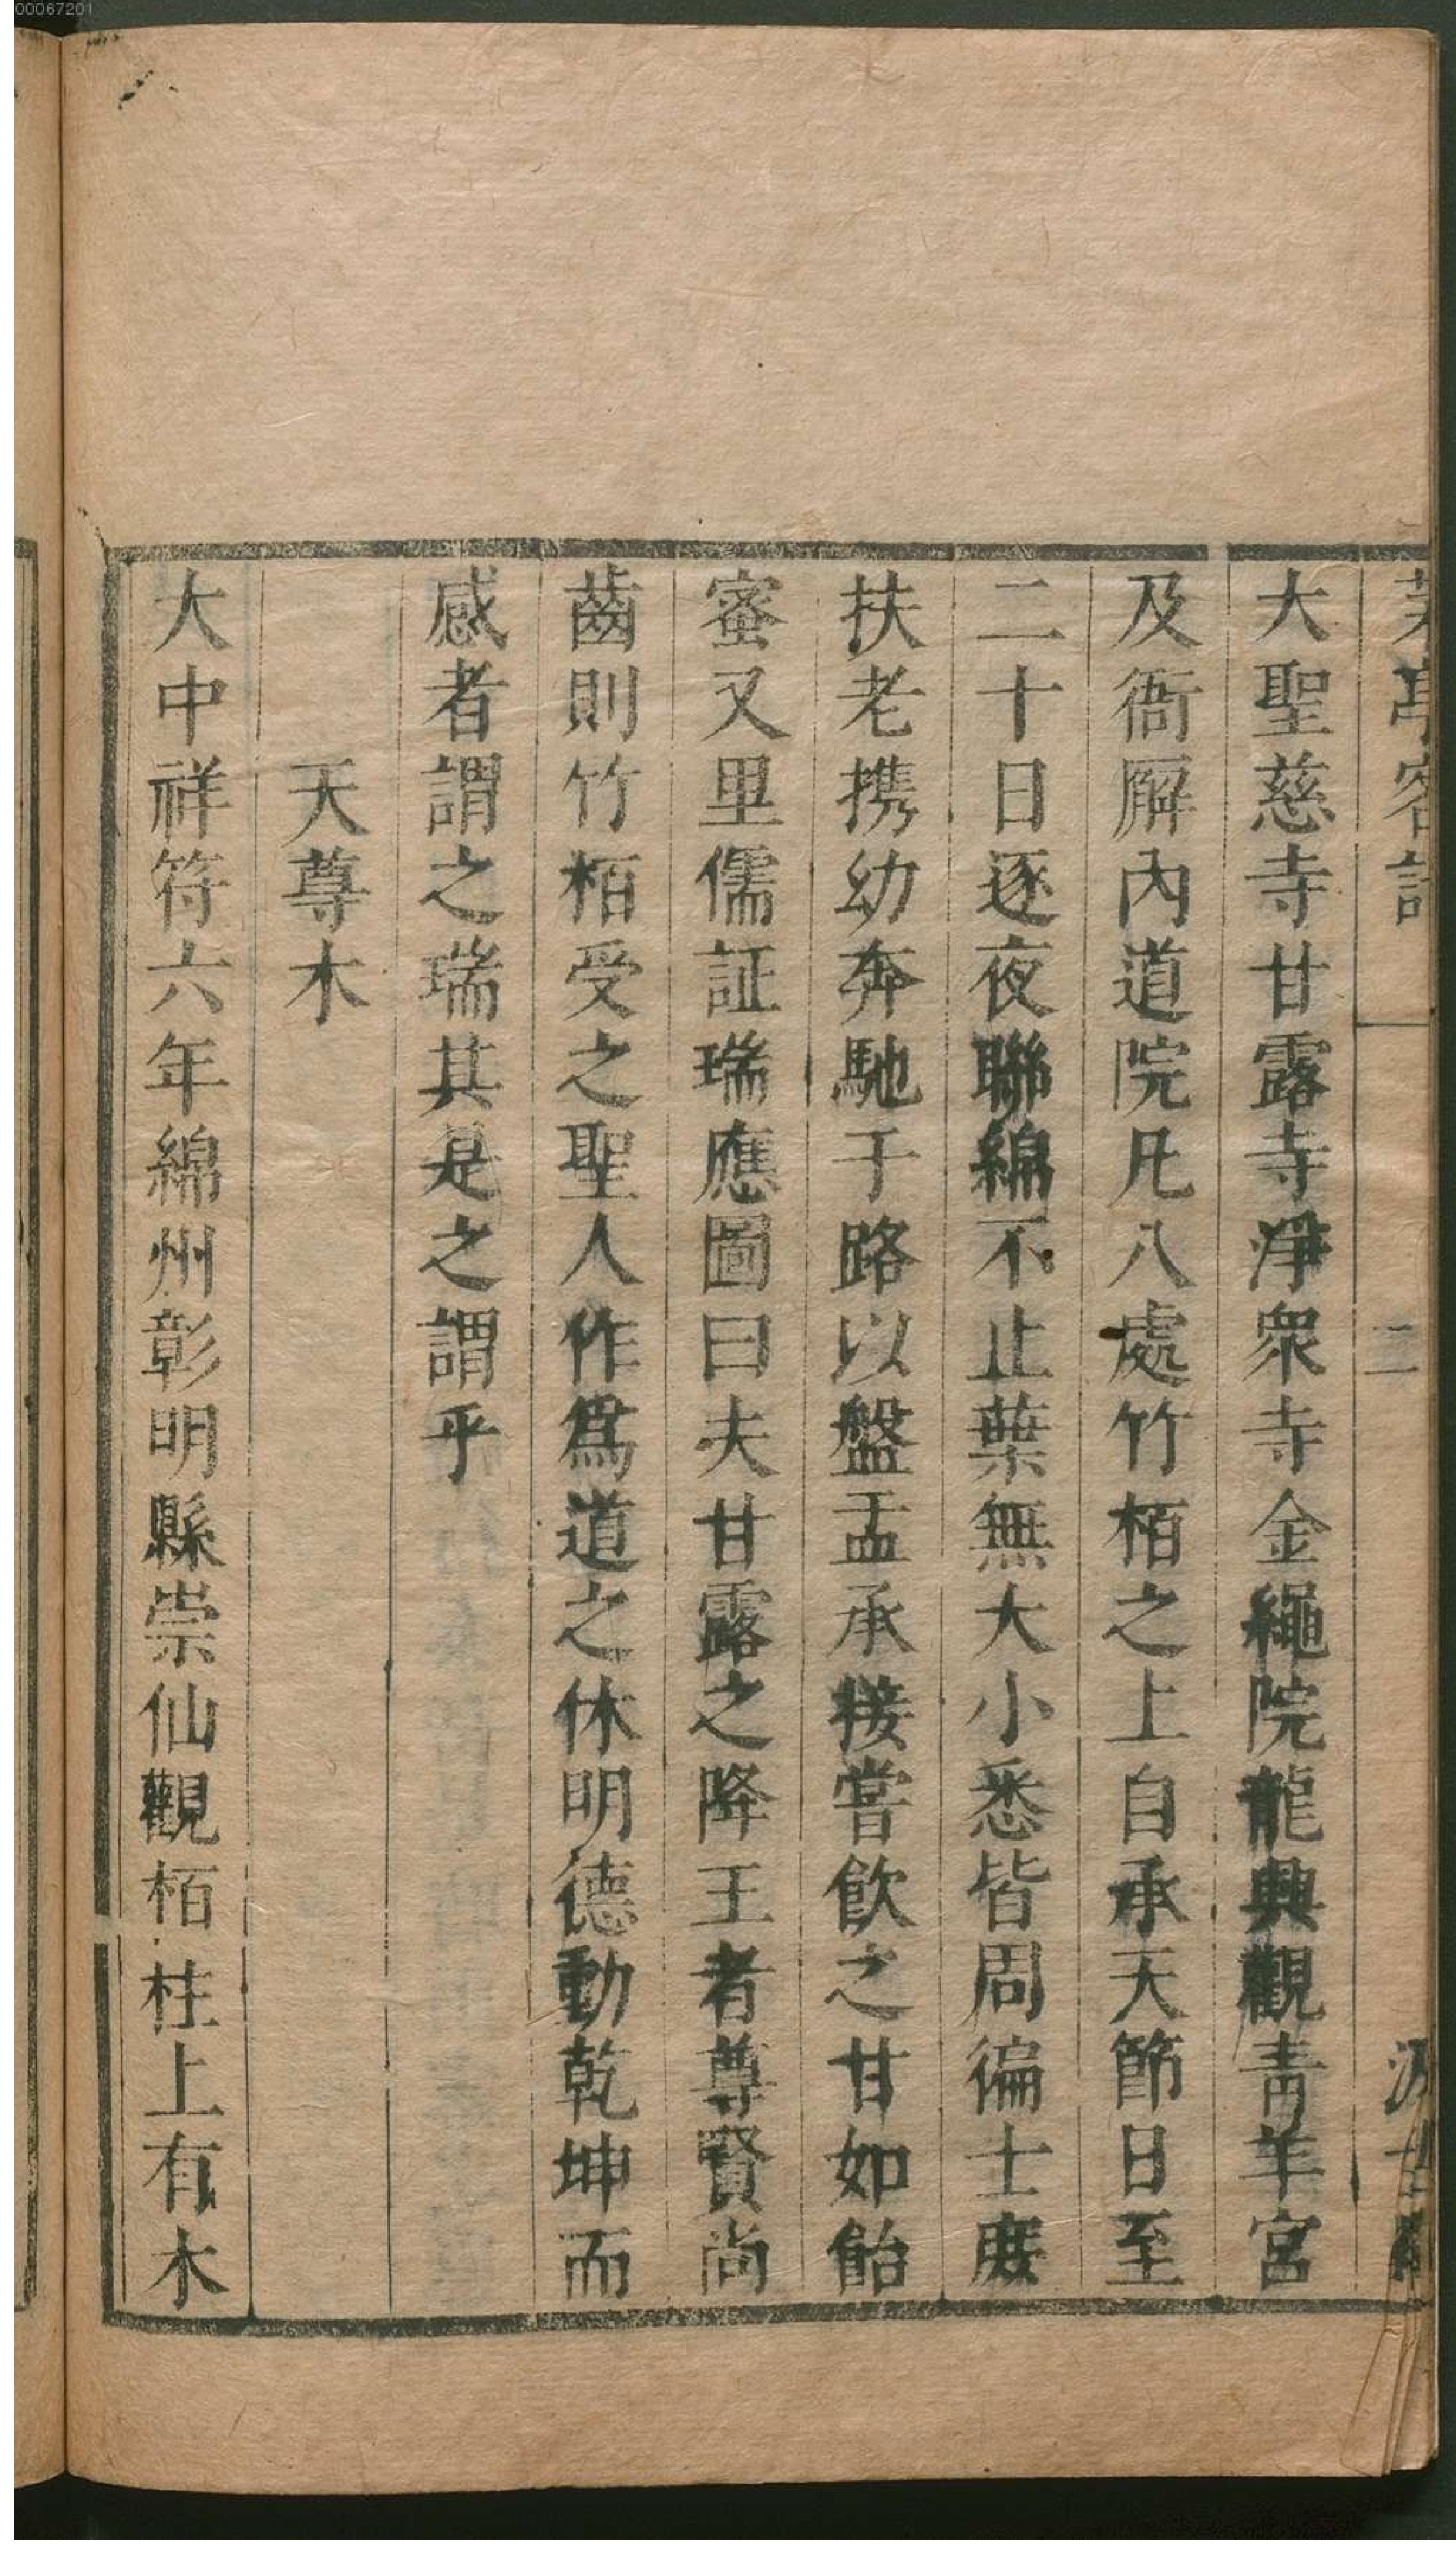 00067201
茅亭客話
二
大聖慈寺甘露寺淨衆寺金繩院龍興觀青羊宮
及衙廨內道院凡八處竹栢之上自承天節日至
二十日逐夜聯綿不止葉無大小悉皆周徧士庶
扶老携幼奔馳于路以盤盂承接嘗飲之甘如飴
蜜又里儒証瑞應圖曰夫甘露之降王者尊賢尚
齒則竹栢受之聖人作爲道之休明德動乾坤而
感者謂之瑞其是之謂乎
天尊木
大中祥符六年綿州彰明縣崇仙觀栢柱上有木